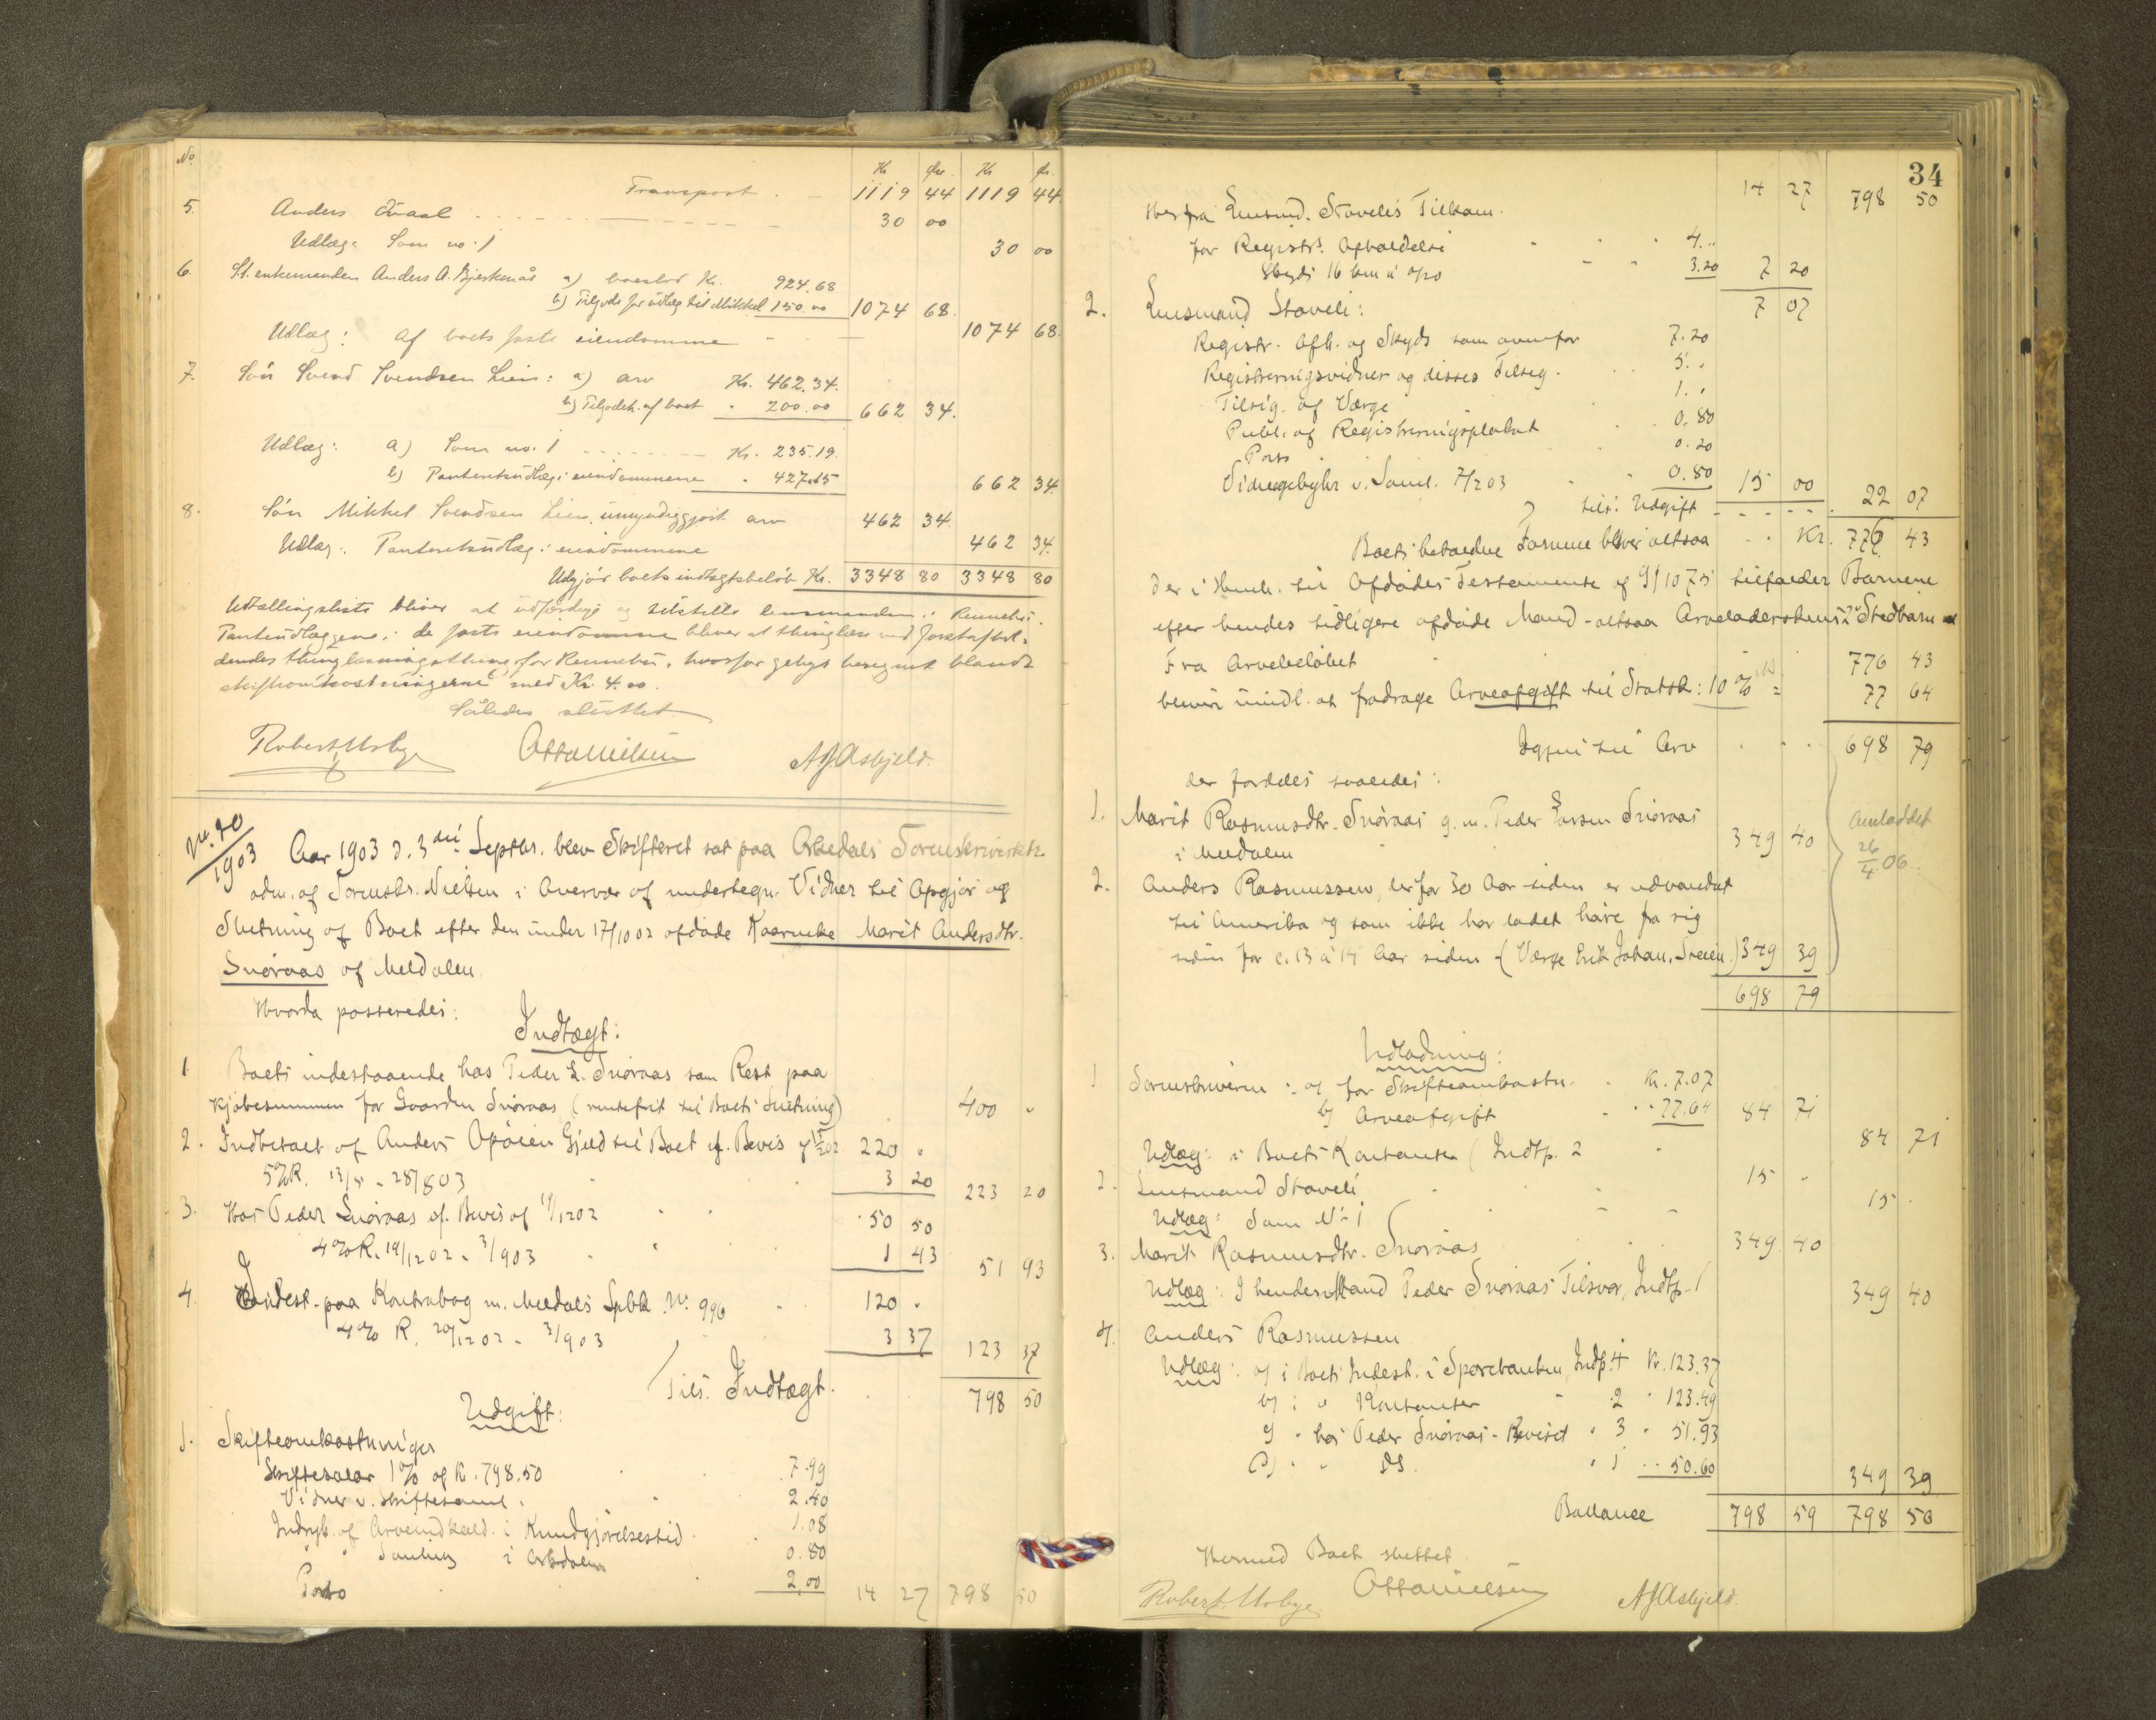 No. Kr. Ør. Kr. Ør.
Transport . - 1119 44 1119 44.
5. Anders Kvaal - - - - 30 00
Udlæg: Som no. 1 30 00
6. St. enkemanden Anders A. Bjerkenås a) boeslod Kr. 924.68
b) Tilgode for udlæg til Mikkel 150.00 1074 68.
Udlæg: Af boets faste eiendomme - - - 1074 68.
7. Søn Svend Svendsen Lien: a) arv Kr. 462.34.
b) Tilgodeh. af boet - 200.00 662 34.
Udlæg: a) Som no. 1 - - - Kr. 235.19.
b) Panteretsudlæg i eiendommene - 427.15 662 34.
8. Søn Mikkel Svendsen Lien, umyndiggjort arv 462 34.
Udlæg: Panteretsudlæg i eiendommene 462 34.
Udgjør boets indtægtsbeløb Kr. 3348 80 3348 80
Udlællingsliste bliver at udfærdige og tilstille lensmanden i Rennebu.
Panteudlæggene i de faste eiendomme bliver at thinglæse ved førstafhol-
dendes thinglæsningsthing for Rennebu, hvorfor gebyr beregnet blandt
skifteomkostningerne med Kr. 4.00.
Således sluttet.
Robert Usbye Otto Nielsen A J Asbjeld.
No. 40/1903 Aar 1903 d. 3die Septbr. blev Skifteret sat paa Orkedals Sorenskriverktr.
adm. af Sorenskr. Nielsen i Overvær af undertegn. Vidner til Opgjør og
Slutning af Boet efter den under 17/10 02 afdøde Kaarenke Marit Andersdtr.
Snøraas af Meldalen.
Hvorda passeredes:
Indtægt:
1 Boets indestaaende hos Peder L. Snøraas som Rest paa
Kjøbesummen for Gaarden Snøraas (rentefrit til Boets Slutning) 400 "
2. Indbetalt af Anders Opøien Gjeld til Boet if. Bevis 220 "
5% R. 13/5 - 28/8 03 3 20 223 20
3. Hos Peder Snøraas if. Bevis af 19/12 02 50 50
4% R. 19/12 02 - 3/9 03 1 43 51 93
4. Indest. paa Kontrabog m. Meldals Spbk. No. 996 120 "
4% R. 20/12 02 - 3/9 03 3 37 123 37
Tils. Indtægt. 798 50
Udgift:
1. Skifteomkostninger
Skiftesalær 1% af Kr. 798.50 7.99
Vidner v. Skiftesaml. 2.40
Indryk. af Arveindkald. i Kundgjørelsestid. 1.08
" " Samling i Orkdalen 0.80
Porto 2.00 14 27 798 50
34
14 27 798 50
Herfra Lensmd. Stavelis Tilkom.
for Registr. Afholdelse 4. "
Skyds 16 km à 0/20 3.20 7 20
7 07
2. Lensmand Staveli:
Registr. Afh. og Skyds som ovenfor 7.20
Registreringsvidner og disses Tilsig. 5. "
Tilsig. af Værge 1. "
Publ. af Registreringsplakat 0.80
Porto 0.20
Vidnegebyhr v. Saml. 7/2 03 0.80 15 00
tils. Udgift - - - - 22 07
Boets beholdne Formue bliver altsaa Kr. 776 43
der i Henh. til Afdødes Testamente af 9/10 75 tilfalder Børnene
efter hendes tidligere afdøde Mand - altsaa Arveladerskens 2 Stedbørn
Fra Arvebeløbet 776 43
bliver imidl. at fradrage Arveafgift til Statsk: 10% = 77 64
Igjen til Arv 698 79
der fordeles saaledes:
1. Marit Rasmusdtr. Snøraas g. m. Peder Larsen Snøraas
i Meldalen 349 40
2. Anders Rasmussen, der for 30 Aar siden er udvandret
til Amerika og som ikke har ladet høre fra sig
siden for c. 13 à 14 Aar siden - (Værge Erik Johan. Sneien.) 349 39
698 79
26/4 06.
Udlodning:
1 Sorenskriveren: a) for Skifteomkostn. Kr. 7.07
b) Arveafgift 77.64 84 71
Udlæg: i Boets Kontanter (Indtp. 2 84 71
2. Lensmand Staveli 15 "
Udlæg: Som No. 1 15 "
3. Marit Rasmusdtr. Snøraas 349 40
Udlæg: I hendes Mand Peder Snøraas Tilsvar, Indtp. 1 349 40
4. Anders Rasmussen
Udlæg: a) i Boets Indest. i Sparebanken, Indtp. 4 Kr. 123.37
b) i " Kontanter " 2 " 123.49
c) " hos Peder Snøraas - Beviset " 3 " 51.93
d) " " Ds. " 1 " 50.60 349 39
Ballance 798 59 798 50
Hermed Boet sluttet.
Robert Usbye. Otto Nielsen A J Asbjeld.